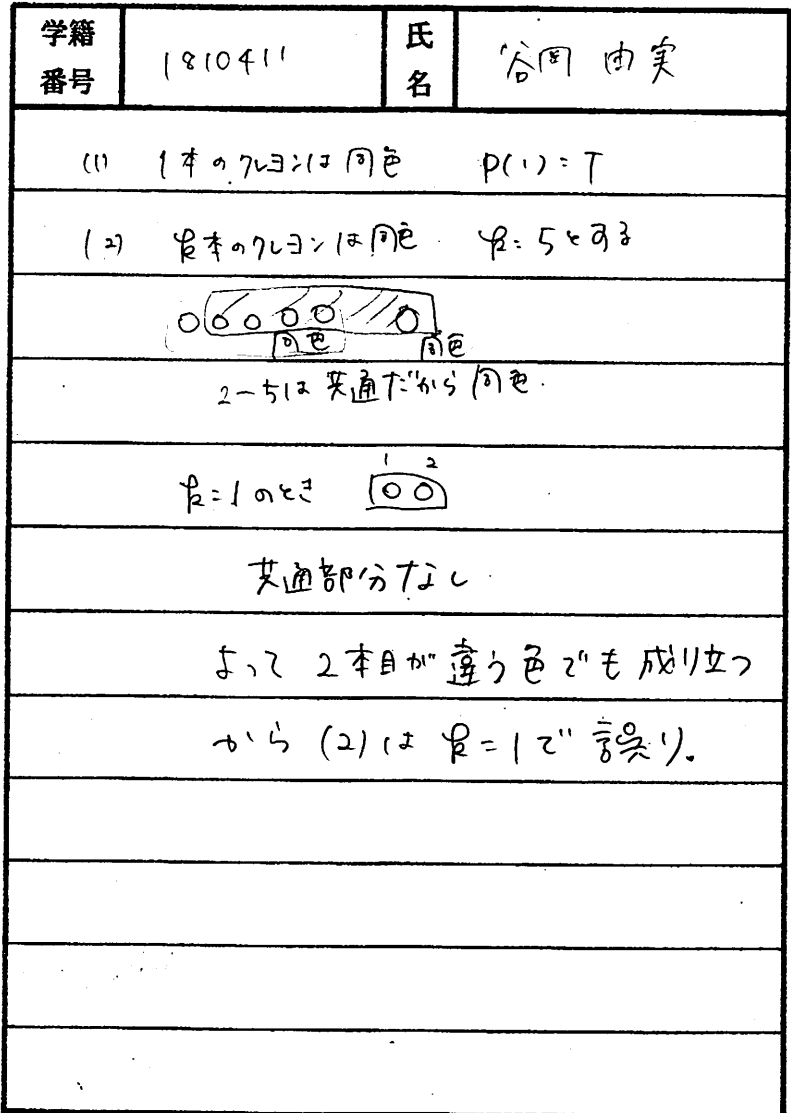 学籍番号 1810411 氏名 谷岡 由実
(1) 1本のクレヨンは同色 P(1)=T
(2) k本のクレヨンは同色. k=5とする
同色 同色
2~5は共通だから同色.
k=1のとき 1 2
共通部分なし.
よって 2本目が違う色でも成り立つ
から (2)は k=1で誤り.